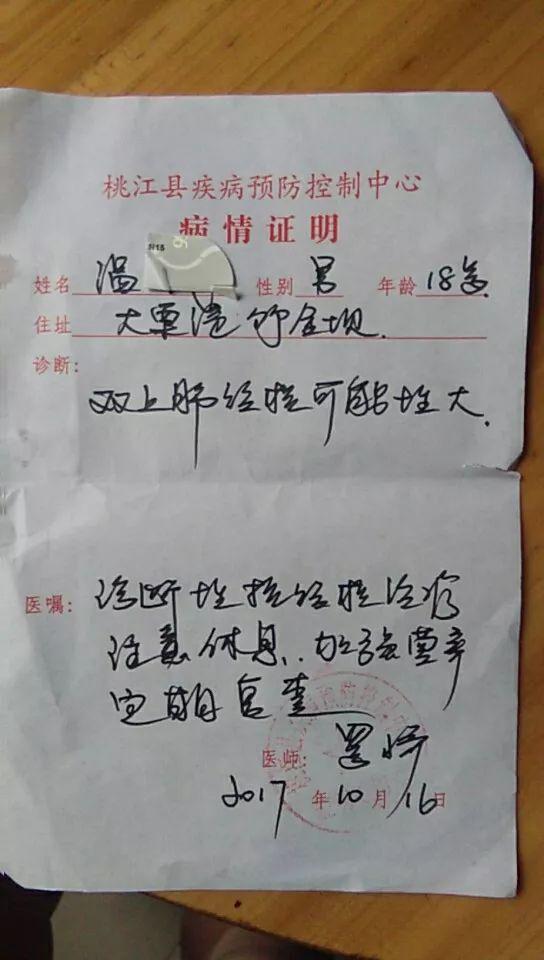 桃江县疾病预防控制中心
病情证明
姓名 温 性别 男 年龄 18岁
住址 大栗港竹金坝.
诊断:
双上肺结核可能性大.
医嘱: 诊断性抗结核治疗
注意休息.. 加强营养
定期复查
医师:
2017年10月16日